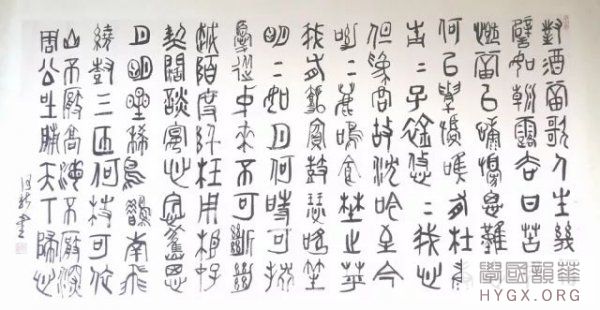 對酒當歌人生幾
譬如朝露去日苦
慨當以慷憂思難
何以解憂唯有杜康
青二子衿悠二我心
但為君故沈吟至今
呦二鹿鳴食野之苹
我有嘉賓鼓瑟吹笙
明二如月何時可掇
憂從中來不可斷絕
越陌度阡枉用相存
契闊談宴心念舊恩
月明星稀烏鵲南飛
繞樹三匝何枝可依
山不厭高海不厭深
周公吐哺天下歸心
書
學國韻華
HYGX.ORG